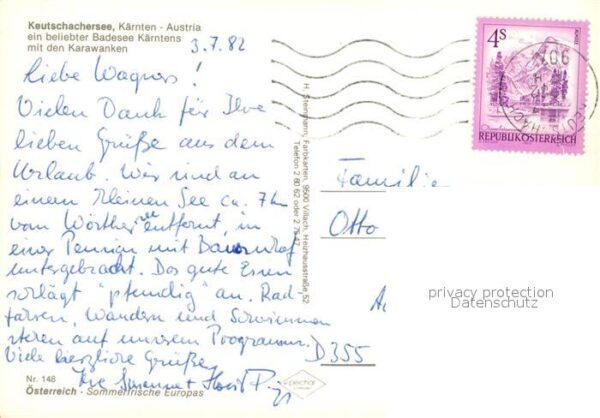 Keutschachersee, Kärnten - Austria
ein beliebter Badesee Kärntens
mit den Karawanken
3.7.82
Liebe Wagners!
Vielen Dank für Ihre
lieben Grüße aus dem
Urlaub. Wir sind an
einem kleinen See ca. 7 km
vom Wörthersee entfernt, in
einer Pension mit Bauernhof
untergebracht. Das gute Essen
schlägt "pfundig" an. Rad-
fahren, Wandern und Schwimmen
stehen auf unserem Programm.
Viele herzliche Grüße
Ihre Susanne + Horst
Nr. 148
Österreich - Sommerfrische Europas
H. Steinmann, Farbkarten, 9500 Villach, Heizhausstraße 52
Telefon 2 60 62 oder 2 75 47
4S
REPUBLIK ÖSTERREICH
Familie
Otto
D 355
privacy protection
Datenschutz